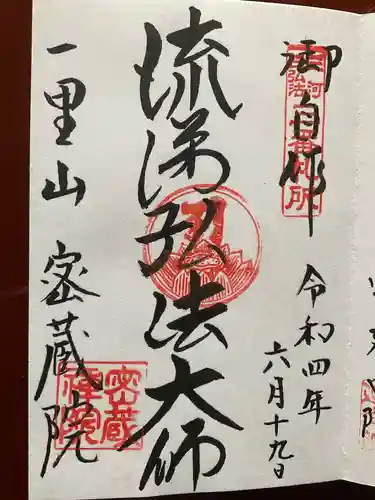 御自作
令和四年
六月十九日
流涕弘法大師
一里山
密蔵院
密蔵